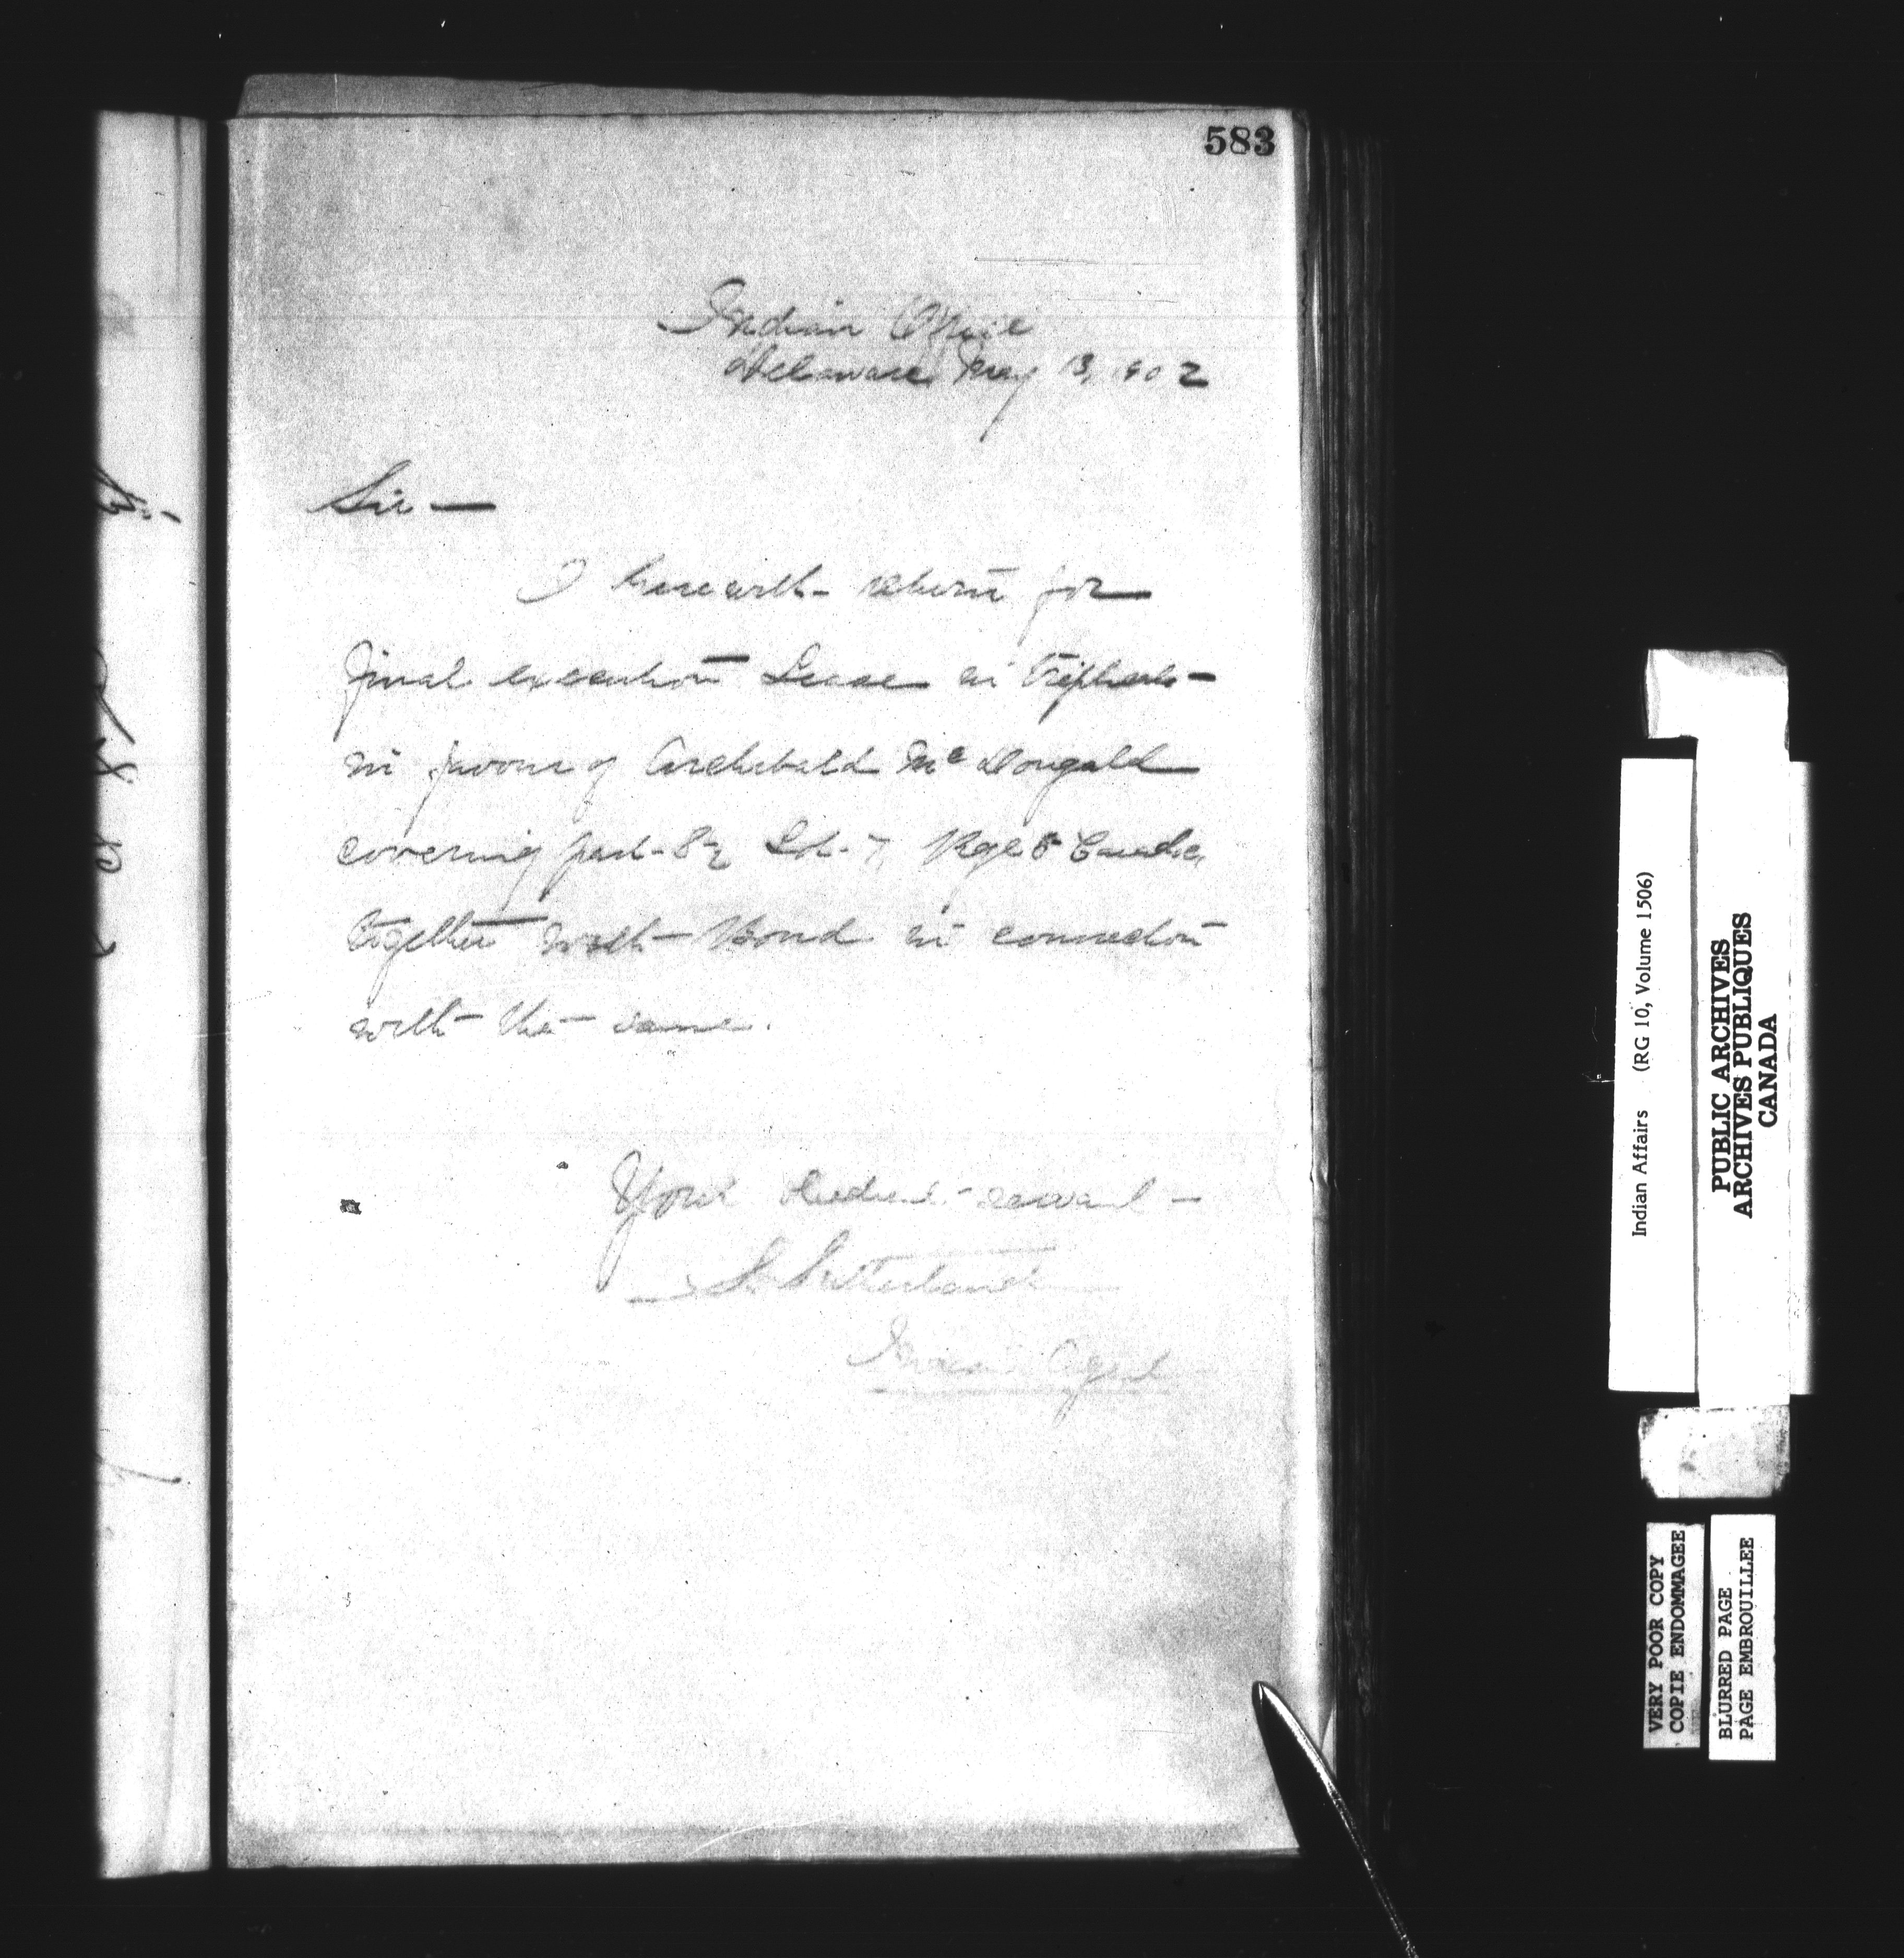 583
Indian Office
Delaware May 13, 1902
Sir —
I herewith return for
final execution Lease in Triplicate
in favour of Archibald McDougald
covering part S½ Lot 7, Rge 5 Caradoc
together with Bond in connection
with the same.
Your obedient servant
S. Sutherland
Indian Agent
Indian Affairs (RG 10, Volume 1506)
PUBLIC ARCHIVES
ARCHIVES PUBLIQUES
CANADA
VERY POOR COPY
COPIE ENDOMMAGEE
BLURRED PAGE
PAGE EMBROUILLEE